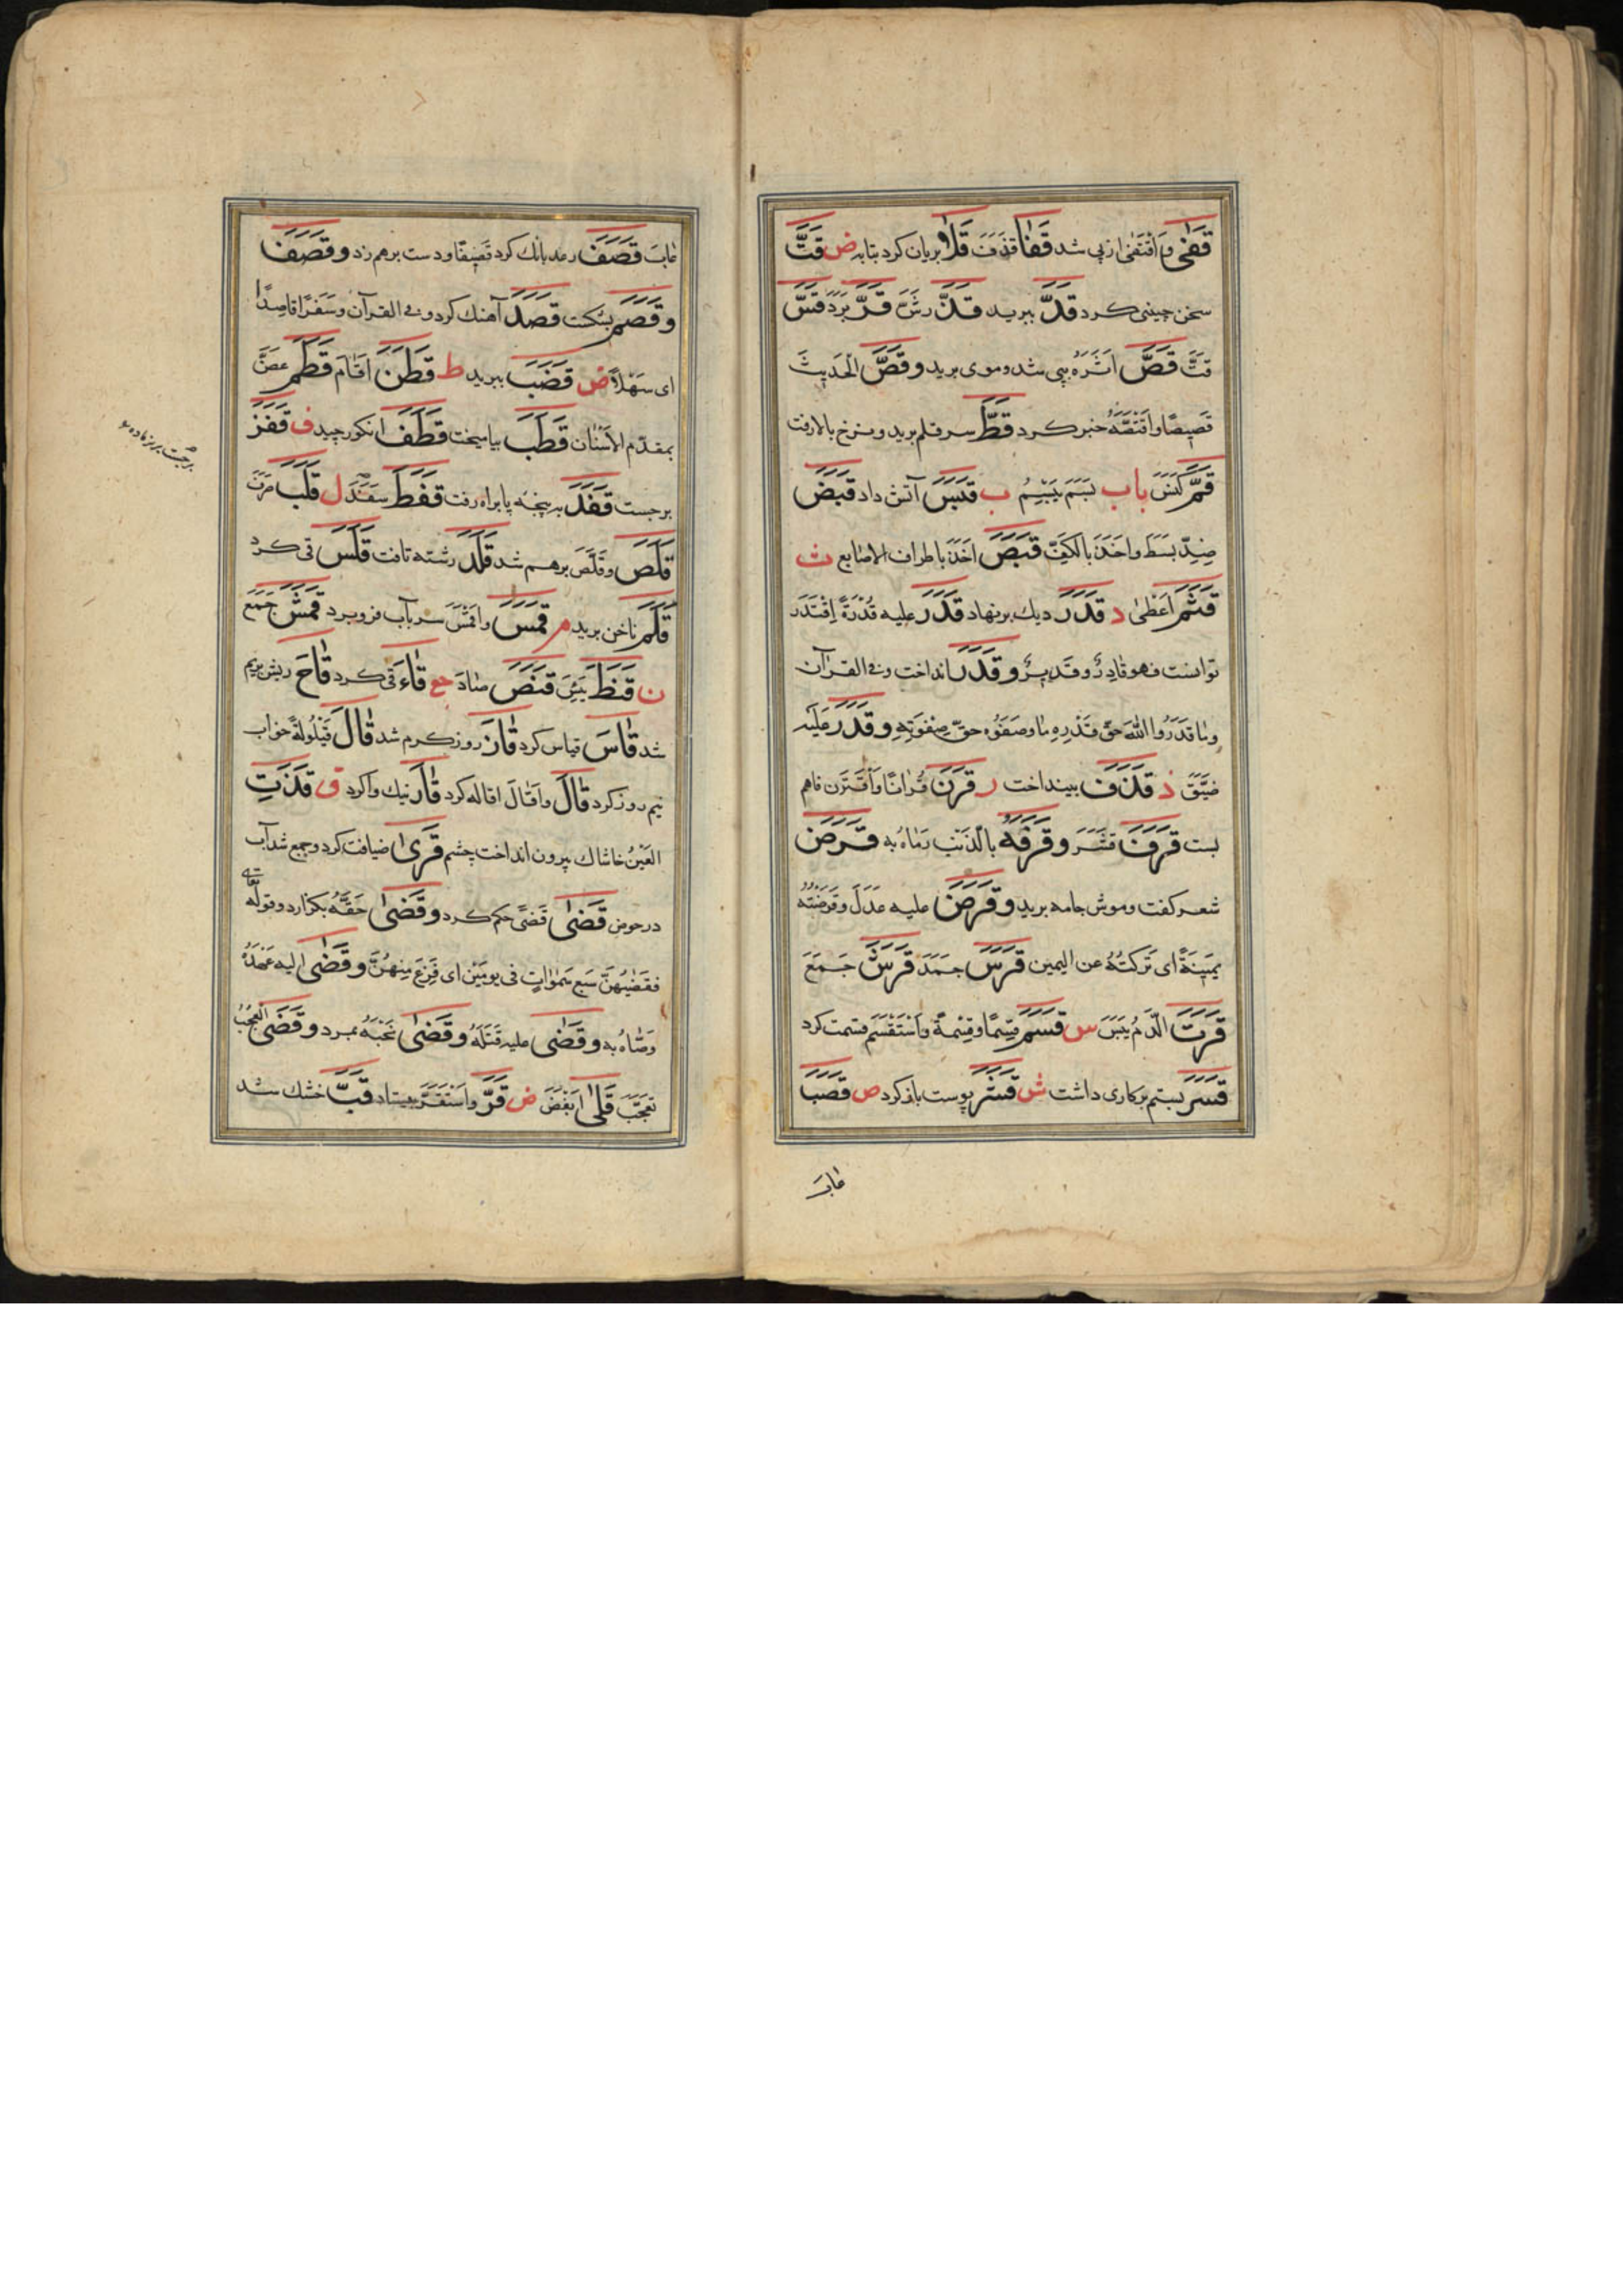 قَفٰى وَاقْتَفٰى از پی شد قَفَا قذَفَ قَلَا بریان کرد بتابه ض قَتَّ
سخن چینی کرد قَدَّ ببرید قَذَّ رشَّ قَرَّ بَرَدَ قَسَّ
قَتَّ قَصَّ اَثَرَهُ بپی شد و موی برید و قَصَّ الْحَدِیثَ
قَصِیصًا وَاقْتَصَّهُ خبر کرد قَطَّ سر قلم برید و نرخ بالا رفت
قَمَّ كَنَسَ باب بَسَمَ یَبْسِمُ ب قَبَسَ آتش داد قَبَضَ
ضِدّ بَسَطَ و اَخَذَ بِالْكَفِّ قَبَصَ اَخَذَ باطراف الاصابع ث
قَثَمَ اَعْطٰى د قَدَرَ دیك برنهاد قَدَرَ علیه قُدْرَةً اِقْتَدَرَ
توانست فهو قَادِرٌ و قَدِیرٌ و قَدَرَ انداخت و فی القرآن
وَمَا قَدَرُوا اللّٰهَ حَقَّ قَدْرِهِ مَا وصَفَوُه حقّ صِفَوَتِهِ و قَدَرَ عَلَیْه
ضَیَّقَ ذ قَذَفَ بینداخت ر قَرَنَ قِرَانًا وَاقْتَرَن فاهم
بست قَرَفَ قَشَرَ و قَرَفَهُ بالذَّنْبِ رَمَاهُ به قَرَضَ
شعر کفت و موش جامه برید و قَرَضَ علیه عَدَلَ وقَرَضْتُه
یَمِینَةً ای تَرَكتُهُ عن الیمین قَرَسَ جَمَدَ قَرَشَ جَمَعَ
قَرَتَ الدَّمُ یَبَسَ س قَسَمَ قِسْمًا و قِسْمةً وَاسْتَقْسَمَ قسمت کرد
قَسَرَ بستم بر کاری داشت ش قَشَرَ پوست باز کرد ص قَصَبَ
عَابَ
عَابَ قَصَفَ رعد بانك کرد قَصِیفًا و دست برهم زد و قَصَفَ
و قَصَمَ بشکست قَصَدَ آهنك کرد و فی القرآن وَسَفَرًا قَاصِدًا
ای سَهْلًا ض قَضَبَ ببرید ط قَطَنَ اَقَامَ قَطَمَ عَضَّ
بمقدّم الاَسْنَان قَطَبَ بیامیخت قَطَفَ انکور چید ف قَفَزَ
برجست قَفَدَ بر پنجه پا براه رفت قَفَطَ سَفَدَ ل قَلَبَ صَرَفَ
قَلَصَ و قَلَّصَ برهم شد قَلَدَ رشته تافت قَلَسَ قی کرد
قَلَمَ ناخن برید م قَمَسَ واقمَسَ سر بآب فرو برد قَمَشَ جَمَعَ
ن قَنَطَ یَئِسَ قَنَصَ صَادَ جع قَاءَ قی کرد قَاحَ ریش ریم
شد قَاسَ قیاس کرد قَازَ روز کرم شد قَالَ قَیْلُولَةً خواب
نیم روز کرد قَالَ وَاَقَالَ اقاله کرد قَارَ نیك وا کرد ق قَذَتِ
العَیْنُ خاشاك بیرون انداخت چشم قَرٰى ضیافت کرد و جمع شد آب
در حوض قَضٰى قَضًى حکم کرد و قَضٰى حَقَّهُ بکزارد و قوله تعالی
فَقَضٰیهُنَّ سَبع سَمٰوَاتٍ فی یومَیْن ای فَرَغَ مِنهُنَّ و قَضٰى الیه عَهْدَهُ
وَصَّاهُ به و قَضٰى علیه قَتَلَهُ و قَضٰى نَحْبَهُ بمرد و قَضَى الْعَجَبَ
تَعَجَّبَ قَلٰى اَبْغَضَ ض قَرَّ وَاسْتَقَرَّ بیستاد قَبَّ خشك شد